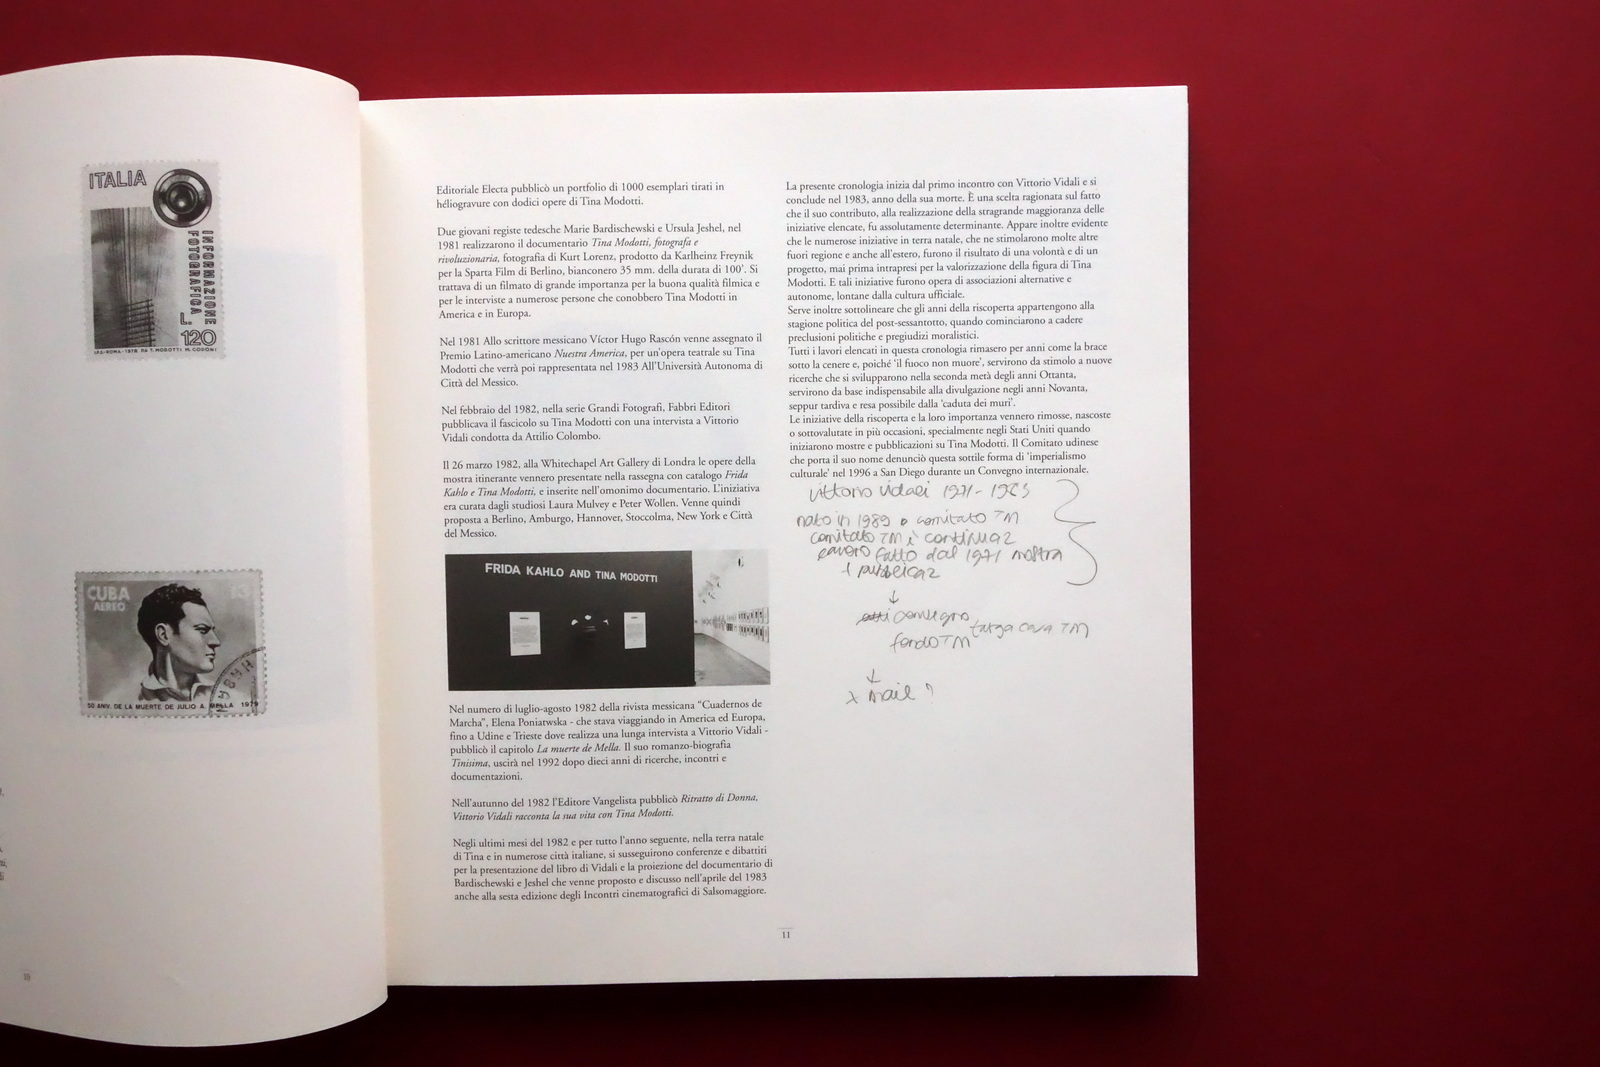 ITALIA
INFORMAZIONE
FOTOGRAFICA
L.
120
I.P.S.-ROMA-1978 DA T. MODOTTI M. CODONI
CUBA
AEREO
13
50 ANIV. DE LA MUERTE DE JULIO A. MELLA 1979
10
Editoriale Electa pubblicò un portfolio di 1000 esemplari tirati in
héliogravure con dodici opere di Tina Modotti.
Due giovani registe tedesche Marie Bardischewski e Ursula Jeshel, nel
1981 realizzarono il documentario Tina Modotti, fotografa e
rivoluzionaria, fotografia di Kurt Lorenz, prodotto da Karlheinz Freynik
per la Sparta Film di Berlino, bianconero 35 mm. della durata di 100'. Si
trattava di un filmato di grande importanza per la buona qualità filmica e
per le interviste a numerose persone che conobbero Tina Modotti in
America e in Europa.
Nel 1981 Allo scrittore messicano Víctor Hugo Rascón venne assegnato il
Premio Latino-americano Nuestra America, per un'opera teatrale su Tina
Modotti che verrà poi rappresentata nel 1983 All'Università Autonoma di
Città del Messico.
Nel febbraio del 1982, nella serie Grandi Fotografi, Fabbri Editori
pubblicava il fascicolo su Tina Modotti con una intervista a Vittorio
Vidali condotta da Attilio Colombo.
Il 26 marzo 1982, alla Whitechapel Art Gallery di Londra le opere della
mostra itinerante vennero presentate nella rassegna con catalogo Frida
Kahlo e Tina Modotti, e inserite nell'omonimo documentario. L'iniziativa
era curata dagli studiosi Laura Mulvey e Peter Wollen. Venne quindi
proposta a Berlino, Amburgo, Hannover, Stoccolma, New York e Città
del Messico.
FRIDA KAHLO AND TINA MODOTTI
Nel numero di luglio-agosto 1982 della rivista messicana “Cuadernos de
Marcha”, Elena Poniatwska - che stava viaggiando in America ed Europa,
fino a Udine e Trieste dove realizza una lunga intervista a Vittorio Vidali -
pubblicò il capitolo La muerte de Mella. Il suo romanzo-biografia
Tinisima, uscirà nel 1992 dopo dieci anni di ricerche, incontri e
documentazioni.
Nell'autunno del 1982 l'Editore Vangelista pubblicò Ritratto di Donna,
Vittorio Vidali racconta la sua vita con Tina Modotti.
Negli ultimi mesi del 1982 e per tutto l'anno seguente, nella terra natale
di Tina e in numerose città italiane, si susseguirono conferenze e dibattiti
per la presentazione del libro di Vidali e la proiezione del documentario di
Bardischewski e Jeshel che venne proposto e discusso nell'aprile del 1983
anche alla sesta edizione degli Incontri cinematografici di Salsomaggiore.
La presente cronologia inizia dal primo incontro con Vittorio Vidali e si
conclude nel 1983, anno della sua morte. È una scelta ragionata sul fatto
che il suo contributo, alla realizzazione della stragrande maggioranza delle
iniziative elencate, fu assolutamente determinante. Appare inoltre evidente
che le numerose iniziative in terra natale, che ne stimolarono molte altre
fuori regione e anche all'estero, furono il risultato di una volontà e di un
progetto, mai prima intrapresi per la valorizzazione della figura di Tina
Modotti. E tali iniziative furono opera di associazioni alternative e
autonome, lontane dalla cultura ufficiale.
Serve inoltre sottolineare che gli anni della riscoperta appartengono alla
stagione politica del post-sessantotto, quando cominciarono a cadere
preclusioni politiche e pregiudizi moralistici.
Tutti i lavori elencati in questa cronologia rimasero per anni come la brace
sotto la cenere e, poiché 'il fuoco non muore', servirono da stimolo a nuove
ricerche che si svilupparono nella seconda metà degli anni Ottanta,
servirono da base indispensabile alla divulgazione negli anni Novanta,
seppur tardiva e resa possibile dalla 'caduta dei muri'.
Le iniziative della riscoperta e la loro importanza vennero rimosse, nascoste
o sottovalutate in più occasioni, specialmente negli Stati Uniti quando
iniziarono mostre e pubblicazioni su Tina Modotti. Il Comitato udinese
che porta il suo nome denunciò questa sottile forma di 'imperialismo
culturale' nel 1996 a San Diego durante un Convegno internazionale.
Vittorio Vidali 1971-1983
nato in 1989 comitato TM
comitato TM è continuaz
lavoro fatto dal 1971 mostra
+ pubblicaz
↓
atti convegno
targa casa TM
fondo TM
↓
x mail ?
11